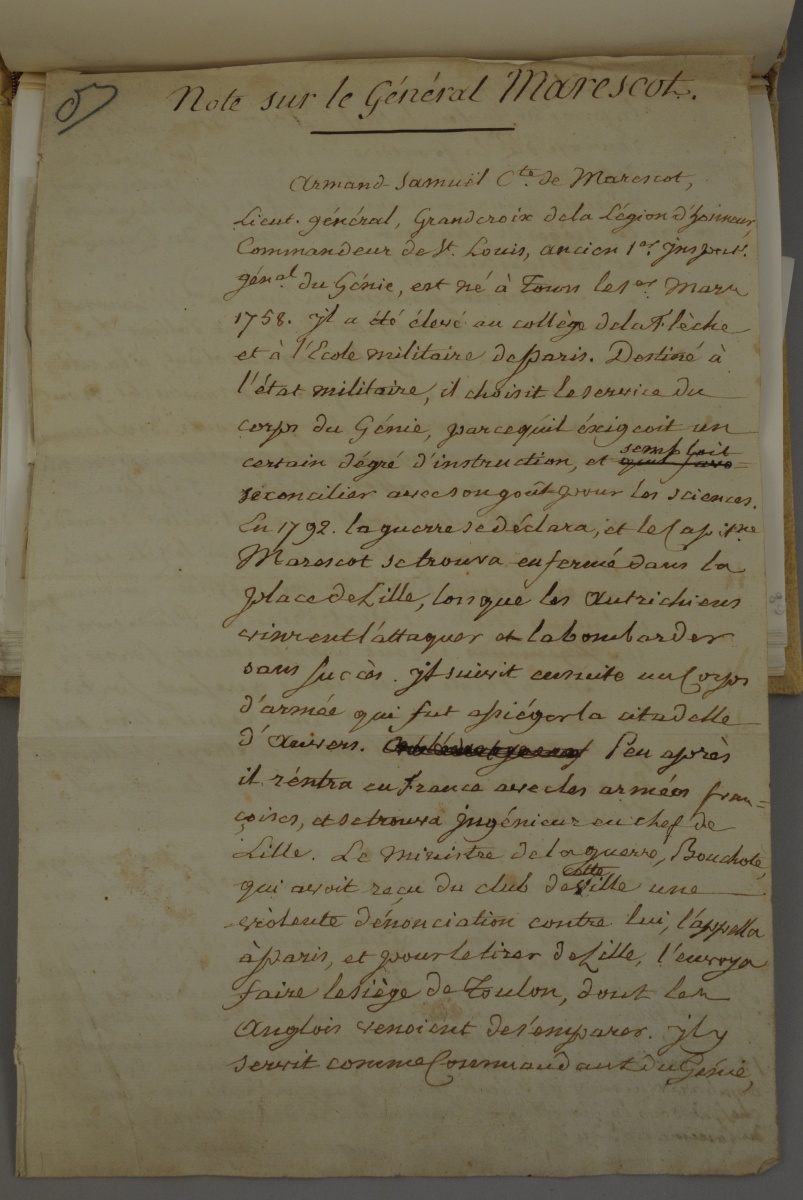 Note sur le Général Marescot.
Armand Samuël Cte. de Marescot,
Lieut. général, Grandcroix de la Légion d'honneur
Commandeur de St. Louis, ancien 1er. jnspect.
génal. du Génie, est né à Tours le 1er. Mars
1758. jl a été élevé au collège de la Flèche
et à l'Ecole militaire de paris. Destiné à
l'état militaire, il choisit le service du
corps du Génie, parcequ'il éxigeoit un
certain dégré d'instruction, et sembloit
se concilier avec son goût pour les sciences.
En 1792. la guerre se déclara, et le Capitne
Marescot se trouva enfermé dans la
place de Lille, lorsque les Autrichiens
vinrent l'attaquer et la bombarder
sans succès. jl suivit ensuite un Corps
d'armée qui fut assiéger la citadelle
d'Anvers. Peu après
il réntra en France avec les armées fran=
çoises, et se trouva jngénieur en chef de
Lille. Le Ministre de la guerre, Bouchote,
qui avoit reçu du club de cette ville une
violente dénonciation contre lui, l'appella
à paris, et pour le tirer de Lille, l'envoya
faire le siège de Toulon, dont les
Anglois venoient de s'emparer. jl y
servit comme Commandant du Génie,